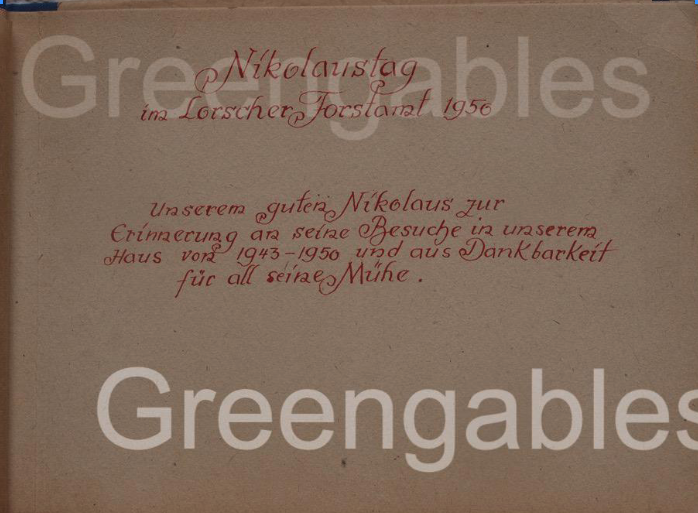 Greengables
Nikolaustag
im Lorscher Forstamt 1950
Unserem guten Nikolaus zur
Erinnerung an seine Besuche in unserem
Haus von 1943-1950 und aus Dankbarkeit
für all seine Mühe.
Greengables